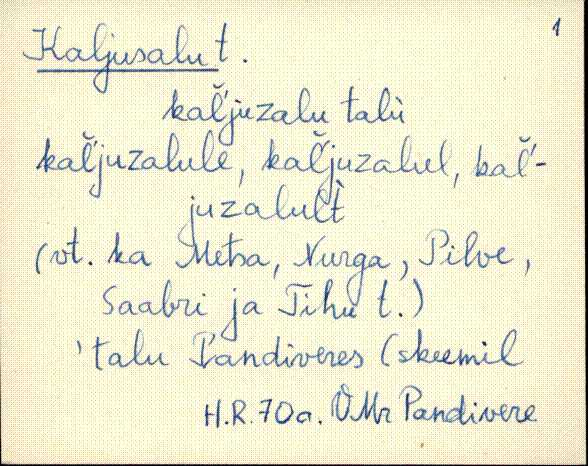 1
Kaljusalu t.
kaľjuzalu talù
kaľjuzalule, kaľjuzalul, kaľ-
juzalult̀
(vt. ka Metsa, Nurga, Pilve,
Saabri ja Tihu t.)
'talu Pandiveres (skeemil
H.R. 70a. VMr Pandivere